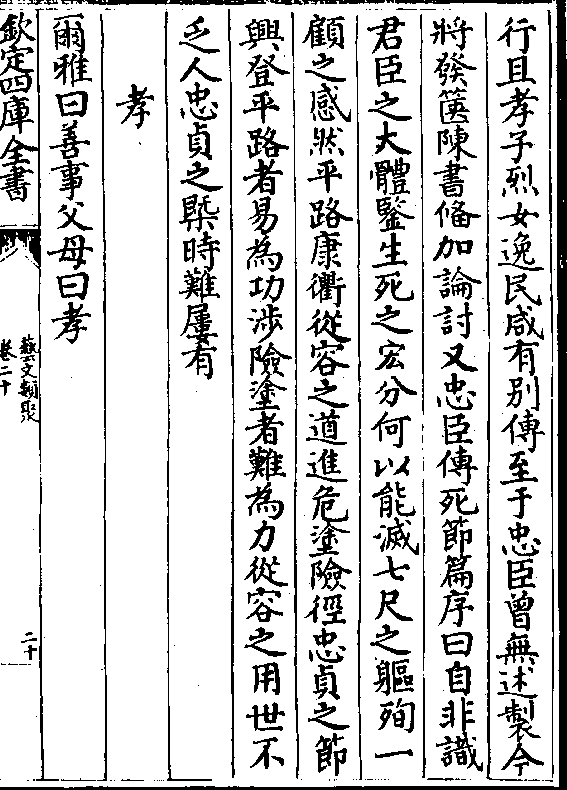 行且孝子烈女逸民咸有别傳至于忠臣曾無述製今
將發篋陳書備加論討又忠臣傳死節篇序曰自非識
君臣之大體鑒生死之宏分何以能滅七尺之軀殉一
顧之感然平路康衢從容之道進危塗險徑忠貞之節
興登平路者易為功涉險塗者難為力從容之用世不
乏人忠貞之槩時難屢有
孝
爾雅曰善事父母曰孝
欽定四庫全書
藝文類聚
卷二十
二十